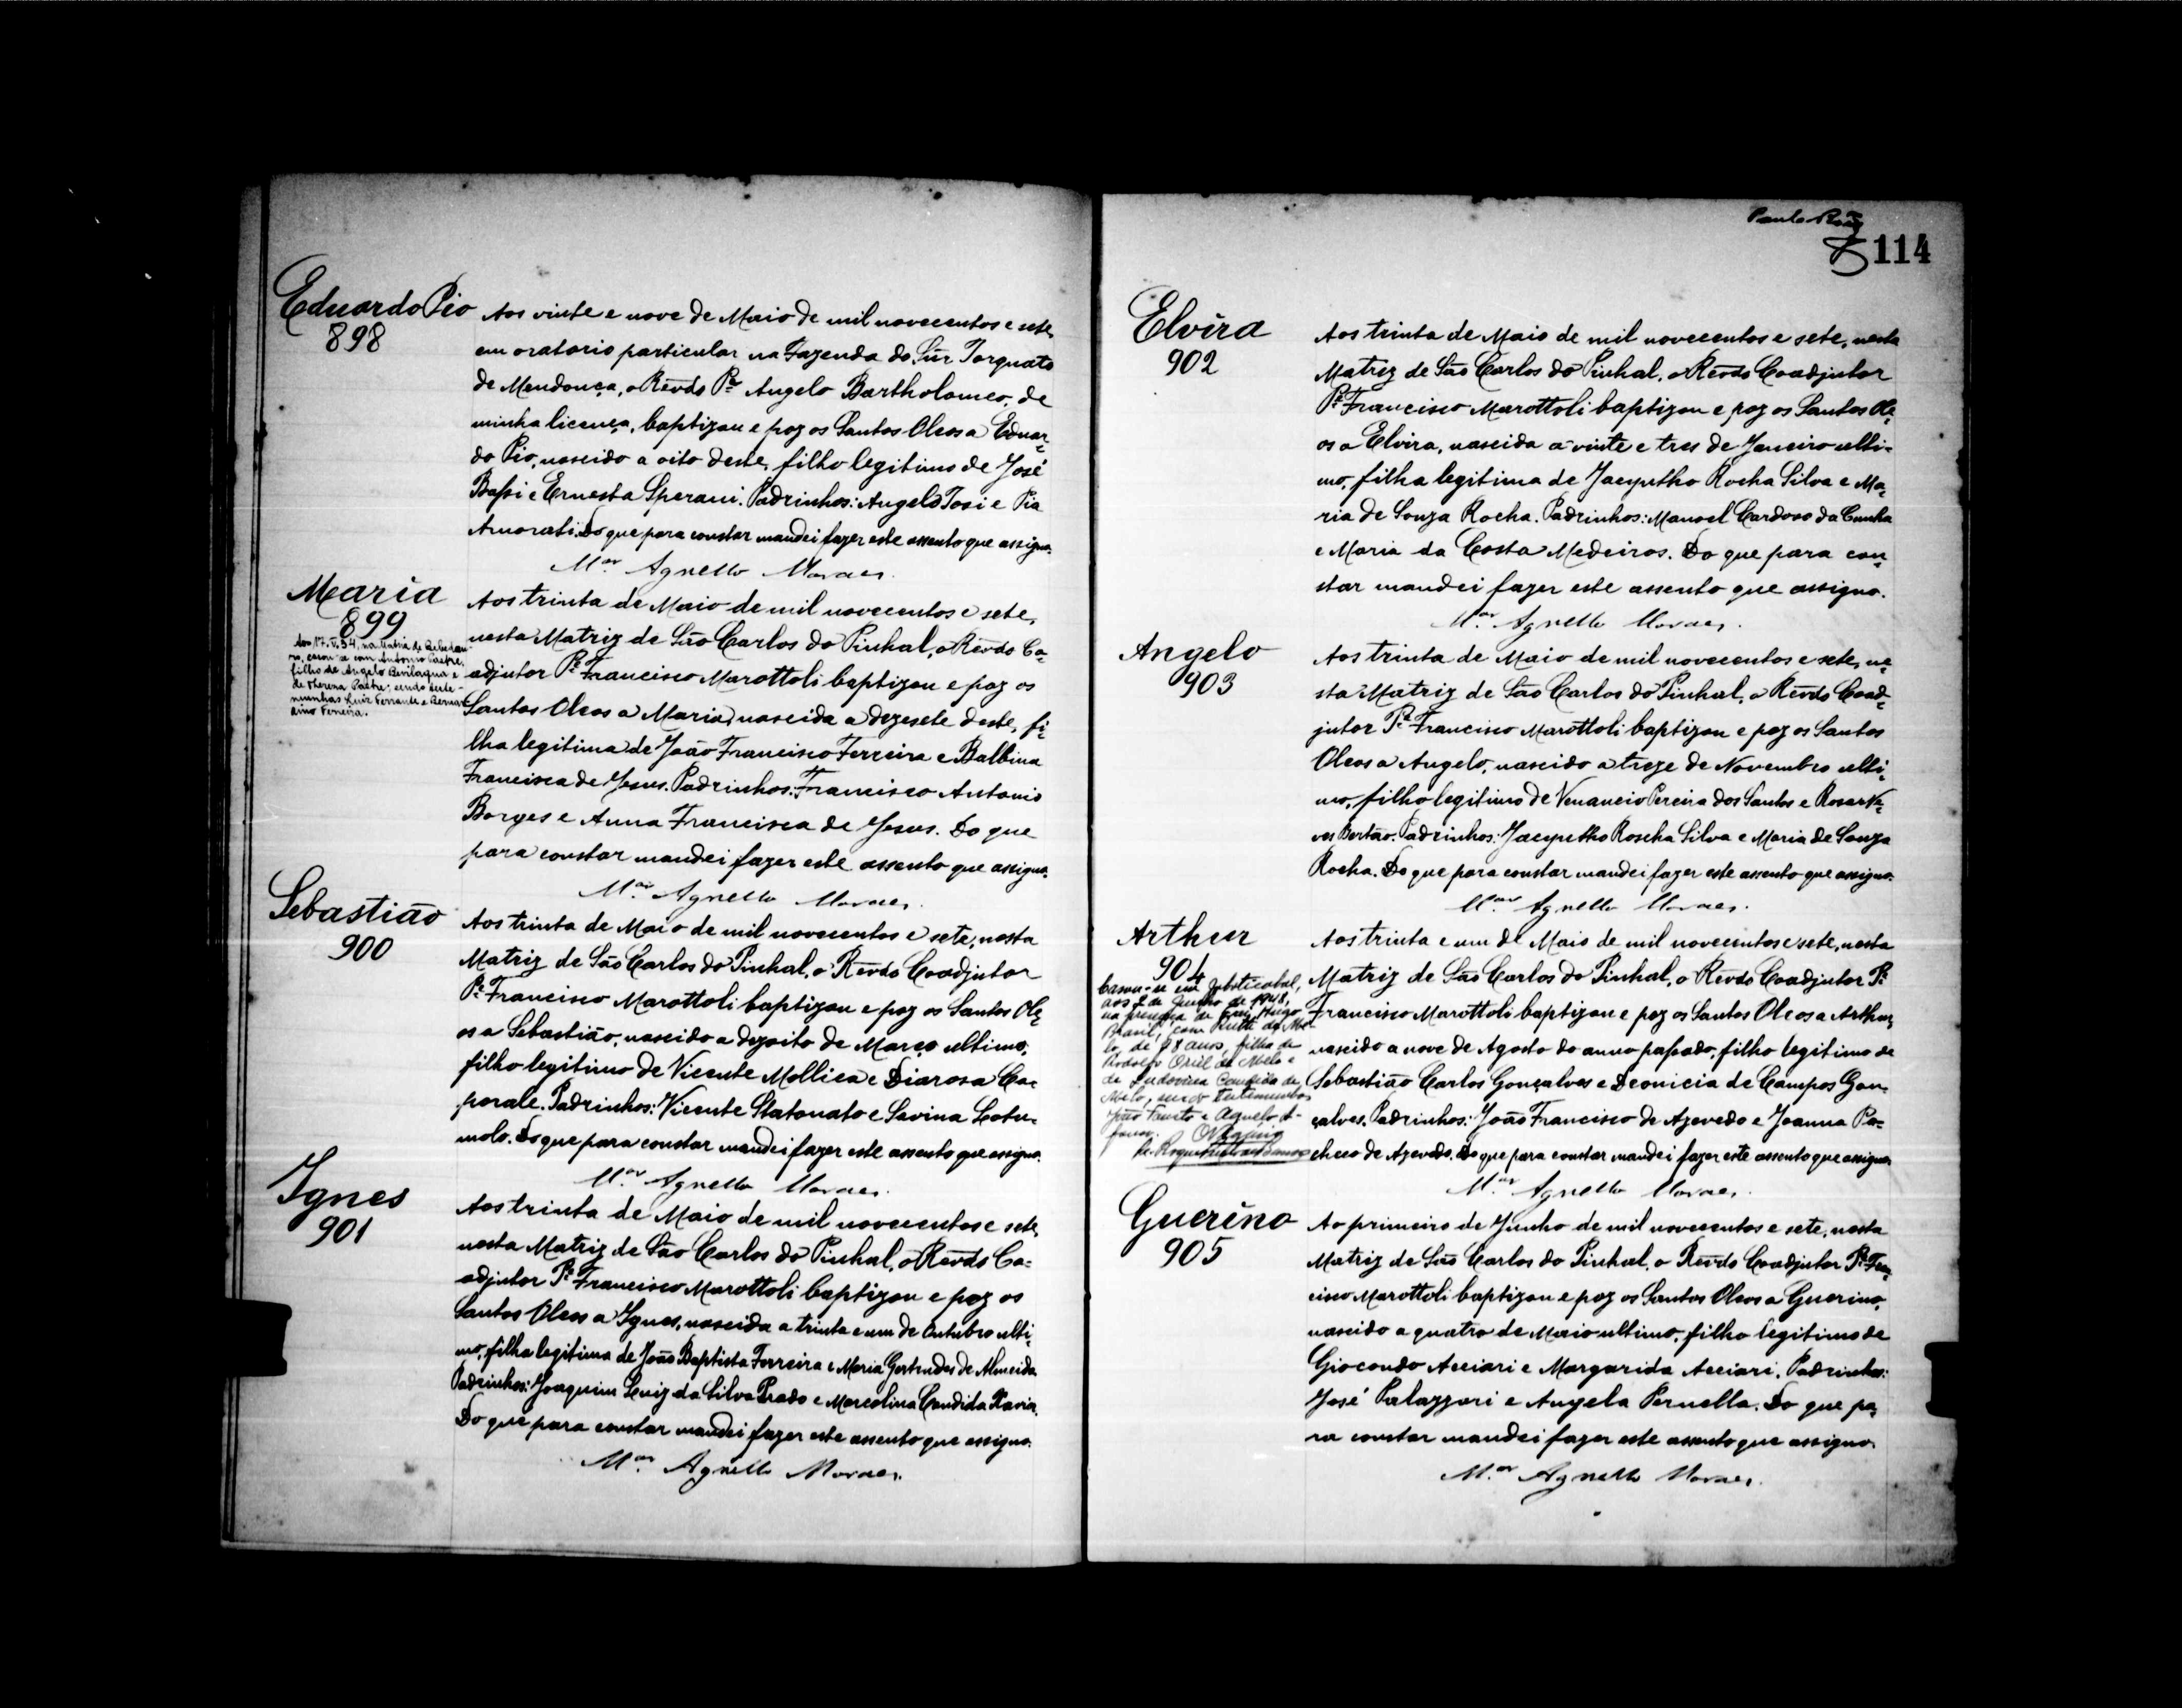 Eduardo Pio
898
Aos vinte e nove de Maio de mil novecentos e sete,
em oratorio particular na Fazenda do Sñr Torquato
de Mendonça, o Revdo Pe Angelo Bartholomeo, de
minha licença, baptizou e poz os Santos Oleos a Eduar-
do Pio, nascido a oito deste, filho legitimo de José
Bassi e Ernesta Sperani. Padrinhos: Angelo Tosi e Pia
Amorati. Do que para constar mandei fazer este assento que assigno.
Mor Agnello Moraes.
Maria
899
Aos 17.V.34, na Matriz de Bebedou-
ro, casou-se com Antonio Pastre,
filho de Angelo Bevilaqua e
de Therena Pastre; sendo teste-
munhas Luiz Ferrante e Bernar-
dino Ferreira.
Aos trinta de Maio de mil novecentos e sete,
nesta Matriz de São Carlos do Pinhal, o Revdo Co-
adjutor Pe Francisco Marottoli baptizou e poz os
Santos Oleos a Maria, nascida a dezesete deste, fi-
lha legitima de João Francisco Ferreira e Balbina
Francisca de Jesus. Padrinhos: Francisco Antonio
Borges e Anna Francisca de Jesus. Do que
para constar mandei fazer este assento que assigno.
Mor Agnello Moraes.
Sebastião
900
Aos trinta de Maio de mil novecentos e sete, nesta
Matriz de São Carlos do Pinhal, o Revdo Coadjutor
Pe Francisco Marottoli baptizou e poz os Santos Ole-
os a Sebastião, nascido a dezoito de Março ultimo,
filho legitimo de Vicente Mollica e Diarosa Ca-
porale. Padrinhos: Vicente Statonato e Savina Lotu-
molo. Do que para constar mandei fazer este assento que assigno.
Mor Agnello Moraes.
Ignes
901
Aos trinta de Maio de mil novecentos e sete,
nesta Matriz de São Carlos do Pinhal, o Revdo Co-
adjutor Pe Francisco Marottoli baptizou e poz os
Santos Oleos a Ignes, nascida a trinta e um de Outubro ulti-
mo, filha legitima de João Baptista Ferreira e Maria Gertrudes de Almeida.
Padrinhos: Joaquim Luiz da Silva Prado e Marcolina Candida Xavier.
Do que para constar mandei fazer este assento que assigno.
Mor Agnello Moraes.
114
Elvira
902
Aos trinta de Maio de mil novecentos e sete, nesta
Matriz de São Carlos do Pinhal, o Revdo Coadjutor
Pe Francisco Marottoli baptizou e poz os Santos Ole-
os a Elvira, nascida a vinte e tres de Janeiro ulti-
mo, filha legitima de Jacyntho Rocha Silva e Ma-
ria de Souza Rocha. Padrinhos: Manoel Cardoso da Cunha
e Maria da Costa Medeiros. Do que para con-
star mandei fazer este assento que assigno.
Mor Agnello Moraes.
Angelo
903
Aos trinta de Maio de mil novecentos e sete, ne-
sta Matriz de São Carlos do Pinhal, o Revdo Coad-
jutor Pe Francisco Marottoli baptizou e poz os Santos
Oleos a Angelo, nascido a treze de Novembro ulti-
mo, filho legitimo de Venancio Pereira dos Santos e Rosa Ne-
ves Bertão. Padrinhos: Jacyntho Roscha Silva e Maria de Souza
Rocha. Do que para constar mandei fazer este assento que assigno.
Mor Agnello Moraes.
Arthur
904
Casou-se em Jaboticabal,
aos 2 de Junho de 1948,
na presença de Hugo
com Ruth de Me-
lo, de 28 anos, filha de
Rodolfo Oriel de Melo e
de Ludovina Candida de
Melo, sendo testemunhas
João Fausto e
Aos trinta e um de Maio de mil novecentos e sete, nesta
Matriz de São Carlos do Pinhal, o Revdo Coadjutor Pe
Francisco Marottoli baptizou e poz os Santos Oleos a Arthur,
nascido a nove de Agosto do anno passado, filho legitimo de
Sebastião Carlos Gonçalves e Deonicia de Campos Gon-
çalves. Padrinhos: João Francisco de Azevedo e Joanna Pa-
checo de Azevedo. Do que para constar mandei fazer este assento que assigno.
Mor Agnello Moraes.
Guerino
905
Ao primeiro de Junho de mil novecentos e sete, nesta
Matriz de São Carlos do Pinhal, o Revdo Coadjutor Pe Fran-
cisco Marottoli baptizou e poz os Santos Oleos a Guerino,
nascido a quatro de Maio ultimo, filho legitimo de
Giocondo Acciari e Margarida Acciari. Padrinhos:
José Palazzari e Angela Pernella. Do que pa-
ra constar mandei fazer este assento que assigno.
Mor Agnello Moraes.